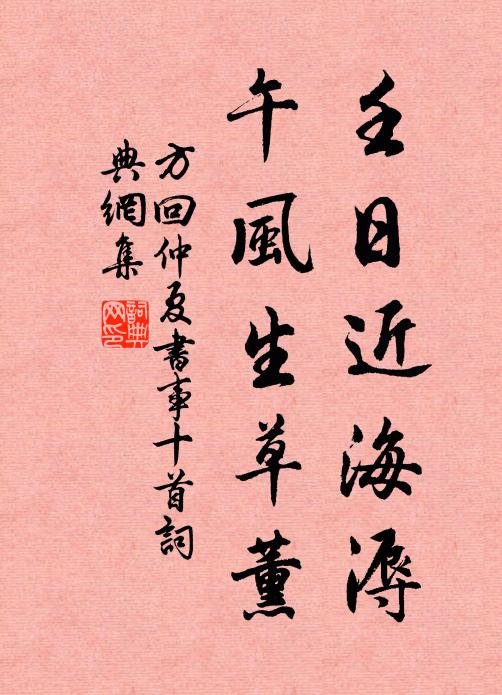 壬日近海溽
午風生草薰
方回仲夏書事十首詞
典網集
詞典網印